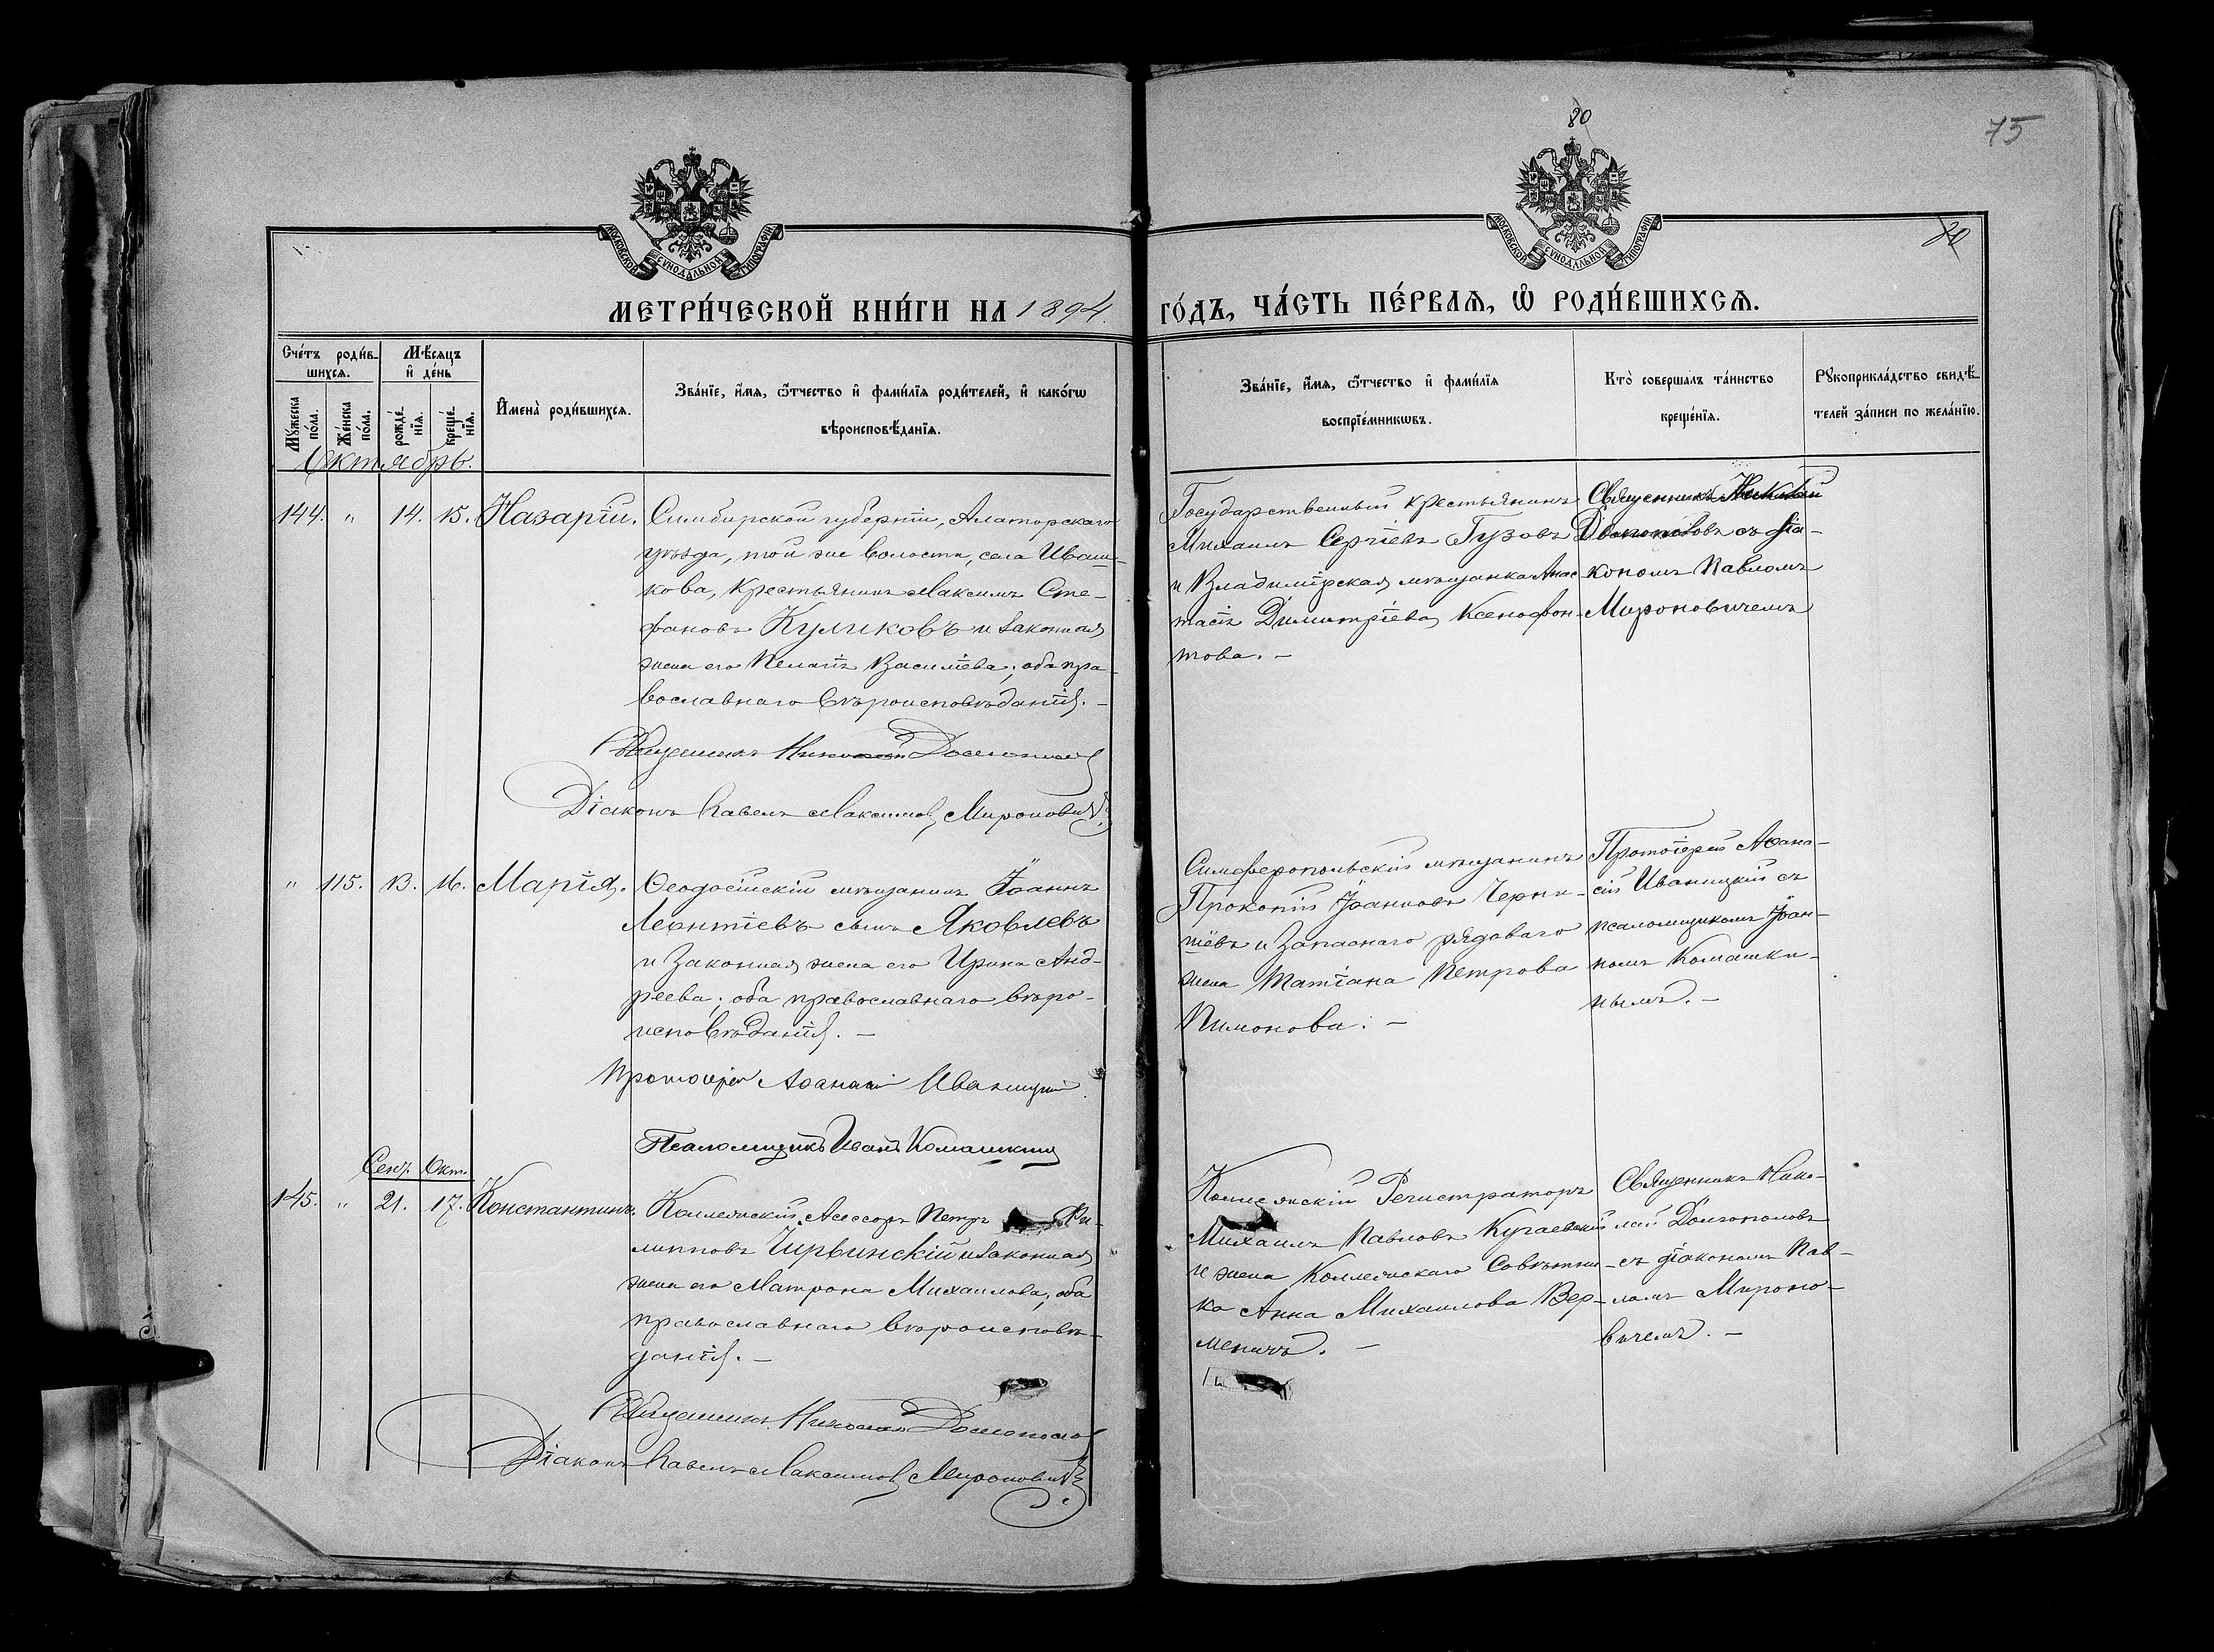 80
75
80
МОСКОВСКОЙ СѴНОДАЛЬНОЙ ТИПОГРАФІИ
МОСКОВСКОЙ СѴНОДАЛЬНОЙ ТИПОГРАФІИ
МЕТРИ́ЧЕСКОЙ КНИ́ГИ НА 1894.
ГО́ДЪ, ЧА́СТЬ ПЕ́РВАЯ, Ѽ РОДИ́ВШИХСЯ.
Сче́тъ роди́в-
шихся.
Мѣ́сяцъ
и҆ де́нь
Мꙋ́жеска
по́ла.
Же́нска
по́ла.
рожде́-
нїя.
креще́-
нїя.
И҆мена̀ роди́вшихся.
Зва́нїе, и҆́мя, ѻ҆́тчество и҆ фами́лїя роди́телей, и҆ како́гѡ
вѣроисповѣ́данїя.
Зва́нїе, и҆́мя, ѻ҆́тчество и҆ фами́лїя
воспрїе́мникѡвъ.
Кто̀ соверша́лъ та́инство
креще́нїя.
Рꙋкоприкла́дство свидѣ́-
телей за́писи по жела́нїю.
Октябрь.
144. " 14. 15. Назарій.
Симбирской губерніи, Алаторскаго
уѣзда, той же волости, села Иваш-
кова, крестьянинъ Максимъ Сте-
фановъ Куликовъ и законная
жена его Пелагія Василіева; оба пра-
вославнаго вѣроисповѣданія. –
Священникъ Николай Долгополов
Діаконъ Павелъ Максимов Мироновичъ.
Государственный крестьянинъ
Михаилъ Сергіевъ Гузовъ
и Владимірская мѣщанка Анас-
тасія Димитріева Ксенофон-
това. –
Священникъ Николай
Долгополовъ съ діа-
кономъ Павломъ
Мироновичемъ
" 115. 13. 16. Марія.
Ѳеодосійскій мѣщанинъ Іоаннъ
Леонтіевъ сынъ Яковлевъ
и законная жена его Ирина Анд-
реева; оба православнаго вѣро-
исповѣданія. –
Протоіерей Аѳанасій Иваницкій.
Псаломщикъ Иванъ Комашкин
Симферопольскій мѣщанинъ
Прокопій Іоанновъ Черны-
шёвъ и запаснаго рядоваго
жена Татіана Петрова
Пимонова. –
Протоіерей Аѳана-
сій Иваницкій съ
псаломщикомъ Іоан-
номъ Комашки-
нымъ. –
Сент. Окт.
145. " 21. 17. Константинъ.
Коллежскій Асессоръ Петръ Фи-
липповъ Чирвинскій и законная
жена его Матрона Михаилова; оба
православнаго вѣроисповѣ-
данія. –
Священникъ Николай Долгополов
Діаконъ Павелъ Максимов Мироновичъ.
Коллежскій Регистраторъ
Михаилъ Павловъ Кугаевскій
и жена Коллежскаго Совѣтни-
ка Анна Михаилова Вер-
меничъ. –
Священникъ Нико-
лай Долгополовъ
съ діакономъ Пав-
ломъ Мироно-
вичемъ. –